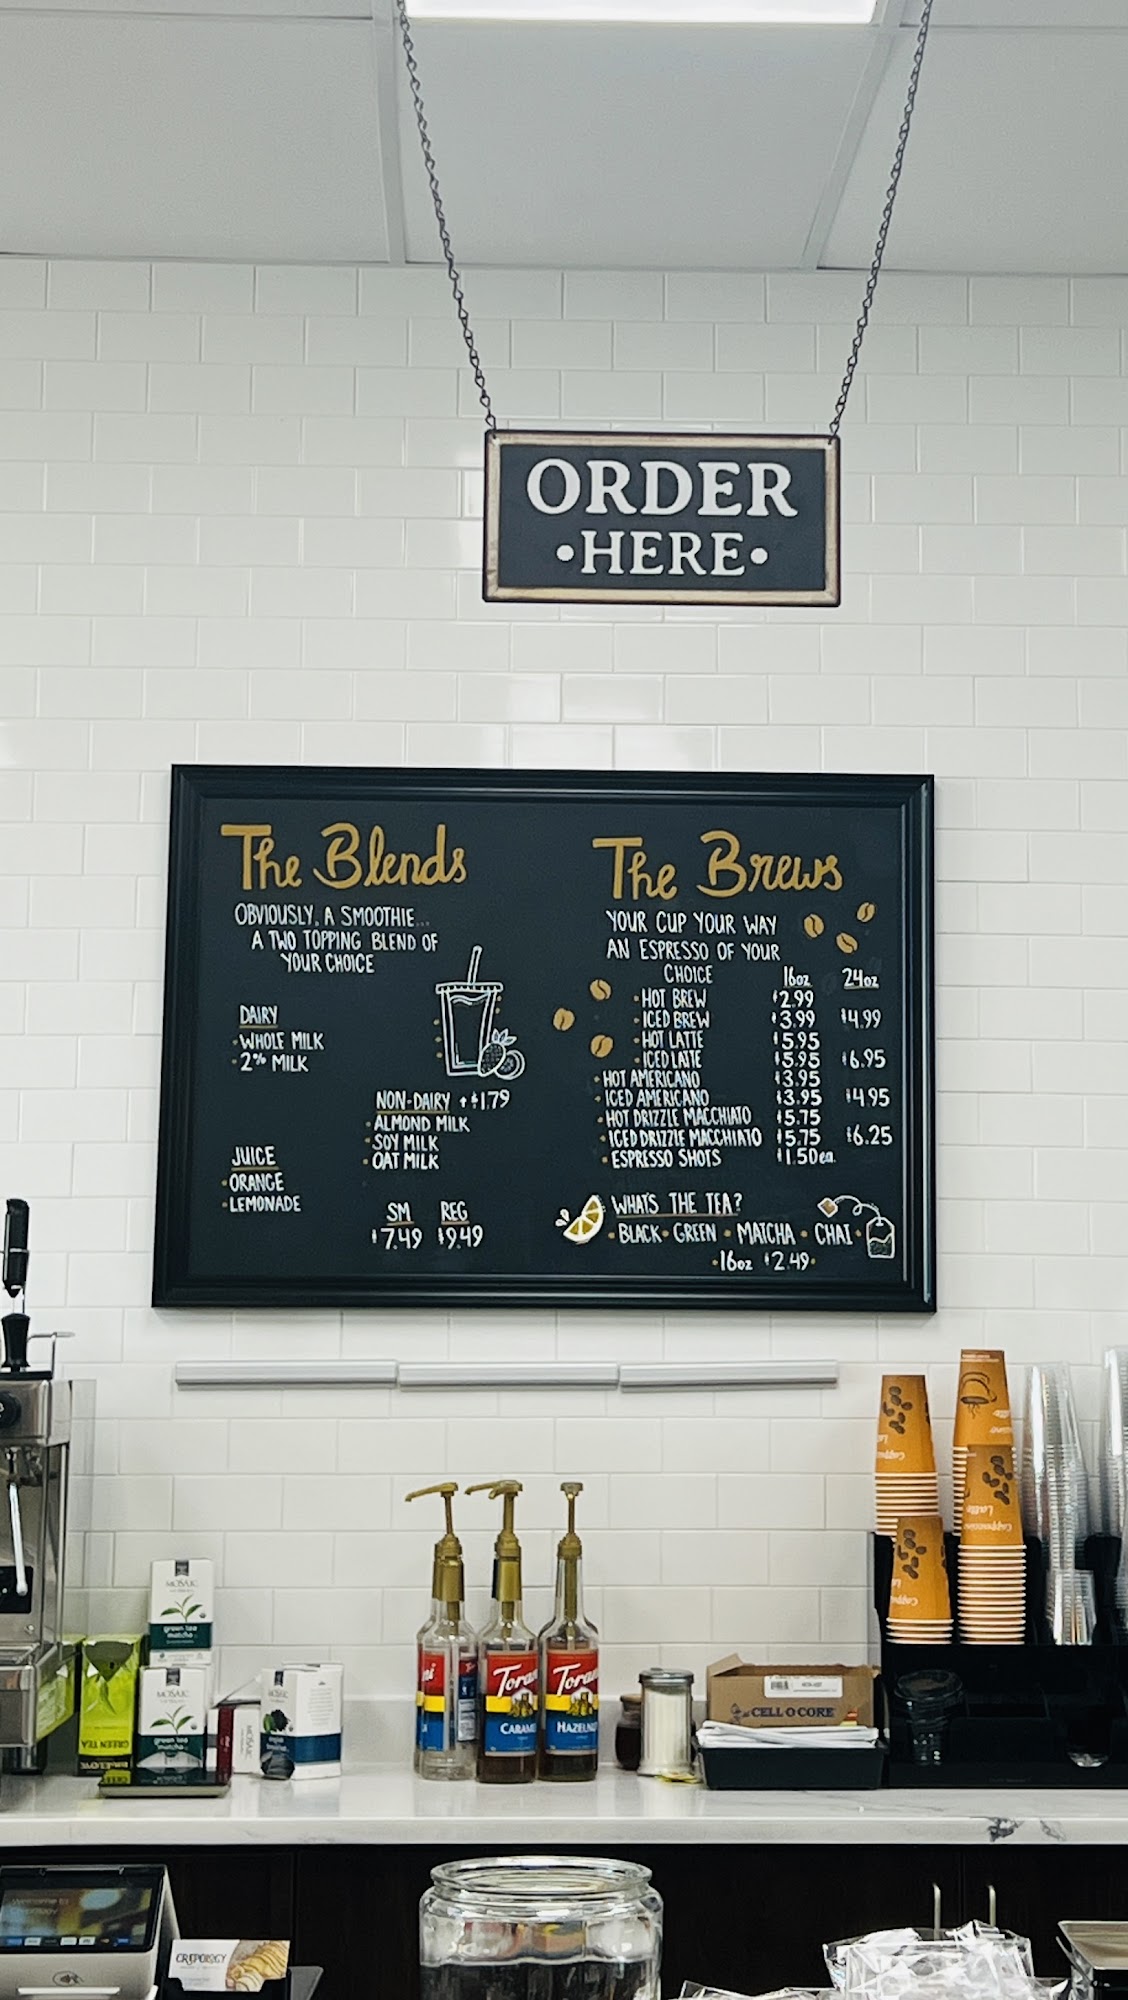 ORDER
•HERE•
The Blends
OBVIOUSLY, A SMOOTHIE...
A TWO TOPPING BLEND OF
YOUR CHOICE
DAIRY
• WHOLE MILK
• 2% MILK
NON-DAIRY +$1.79
• ALMOND MILK
• SOY MILK
• OAT MILK
JUICE
• ORANGE
• LEMONADE
SM REG
$7.49 $9.49
The Brews
YOUR CUP YOUR WAY
AN ESPRESSO OF YOUR
CHOICE 16oz 24oz
• HOT BREW $2.99
• ICED BREW $3.99 $4.99
• HOT LATTE $5.95
• ICED LATTE $5.95 $6.95
• HOT AMERICANO $3.95
• ICED AMERICANO $3.95 $4.95
• HOT DRIZZLE MACCHIATO $5.75
• ICED DRIZZLE MACCHIATO $5.75 $6.25
• ESPRESSO SHOTS $1.50 ea.
WHATS THE TEA?
• BLACK • GREEN • MATCHA • CHAI •
• 16oz $2.49 •
MOSAIC
green tea
matcha
MOSAIC
green tea
matcha
GREEN TEA
BIGELOW
Torani
CARAMEL
Torani
HAZELNUT
CELL O CORE
Cappuccino
Latte
Welcome to
CREPOLOGY